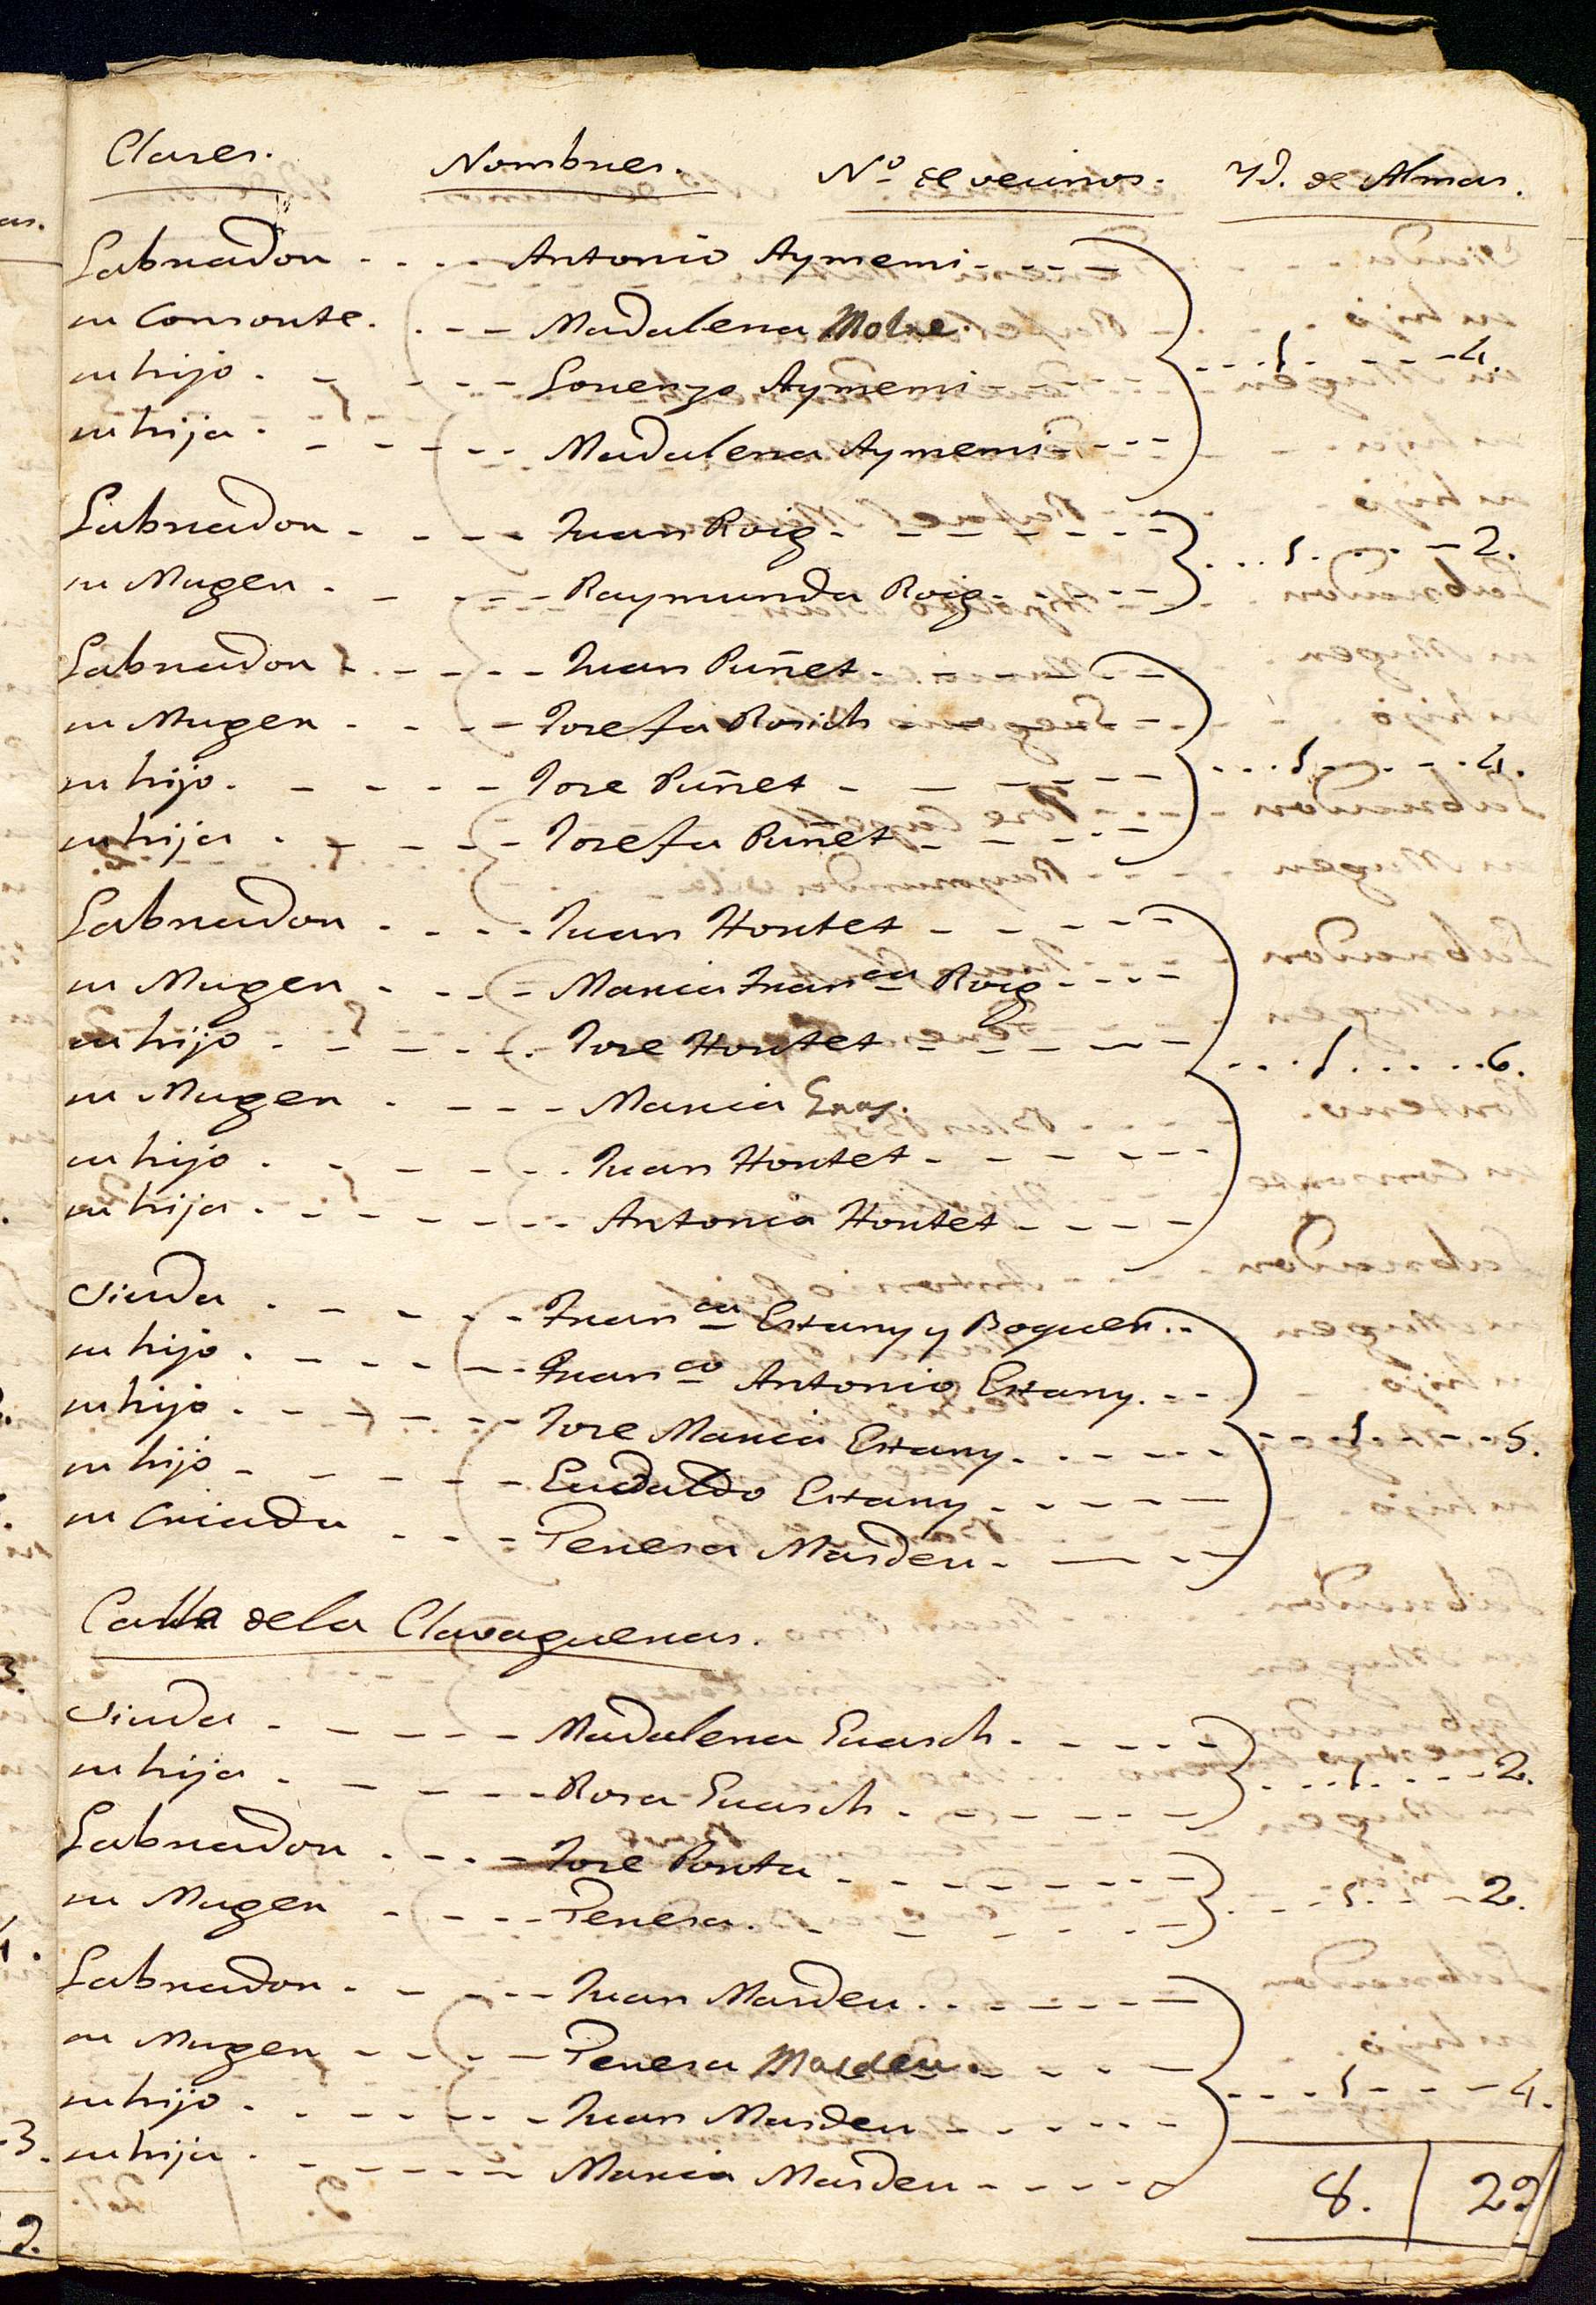 Clases. Nombres. Nº de vecinos. Yd. de Almas.
Labrador Antonio Aymemi
su Consorte. Madalena Molne.
su hijo. Lorenzo Aymemi 1 4.
su hija. Madalena Aymemi
Labrador Juan Roig 1 2.
su Muger. Raymunda Roig
Labrador Juan Puñet
su Muger. Josefa Rosich
su hijo. Jose Puñet 1 4.
su hija. Josefa Puñet
Labrador Juan Hortet
su Muger Maria Franca Roig
su hijo. Jose Hortet 1 6.
su Muger Maria
su hijo. Juan Hortet
su hija. Antonia Hortet
Viuda Franca Estany y Boquer
su hijo. Franco Antonio Estany.
su hijo. Jose Maria Estany 1 5.
su hijo Eudaldo Estany
su Criada Teresa Masdeu
Calle dela Clavagueras.
Viuda Madalena Suasch
su hija. Rosa Suasch 1 2.
Labrador Jose Porta 1 2.
su Muger Teresa.
Labrador Juan Masdeu
su Muger Teresa Masdeu
su hijo. Juan Masdeu 1 4.
su hija. Maria Masdeu
8. 29